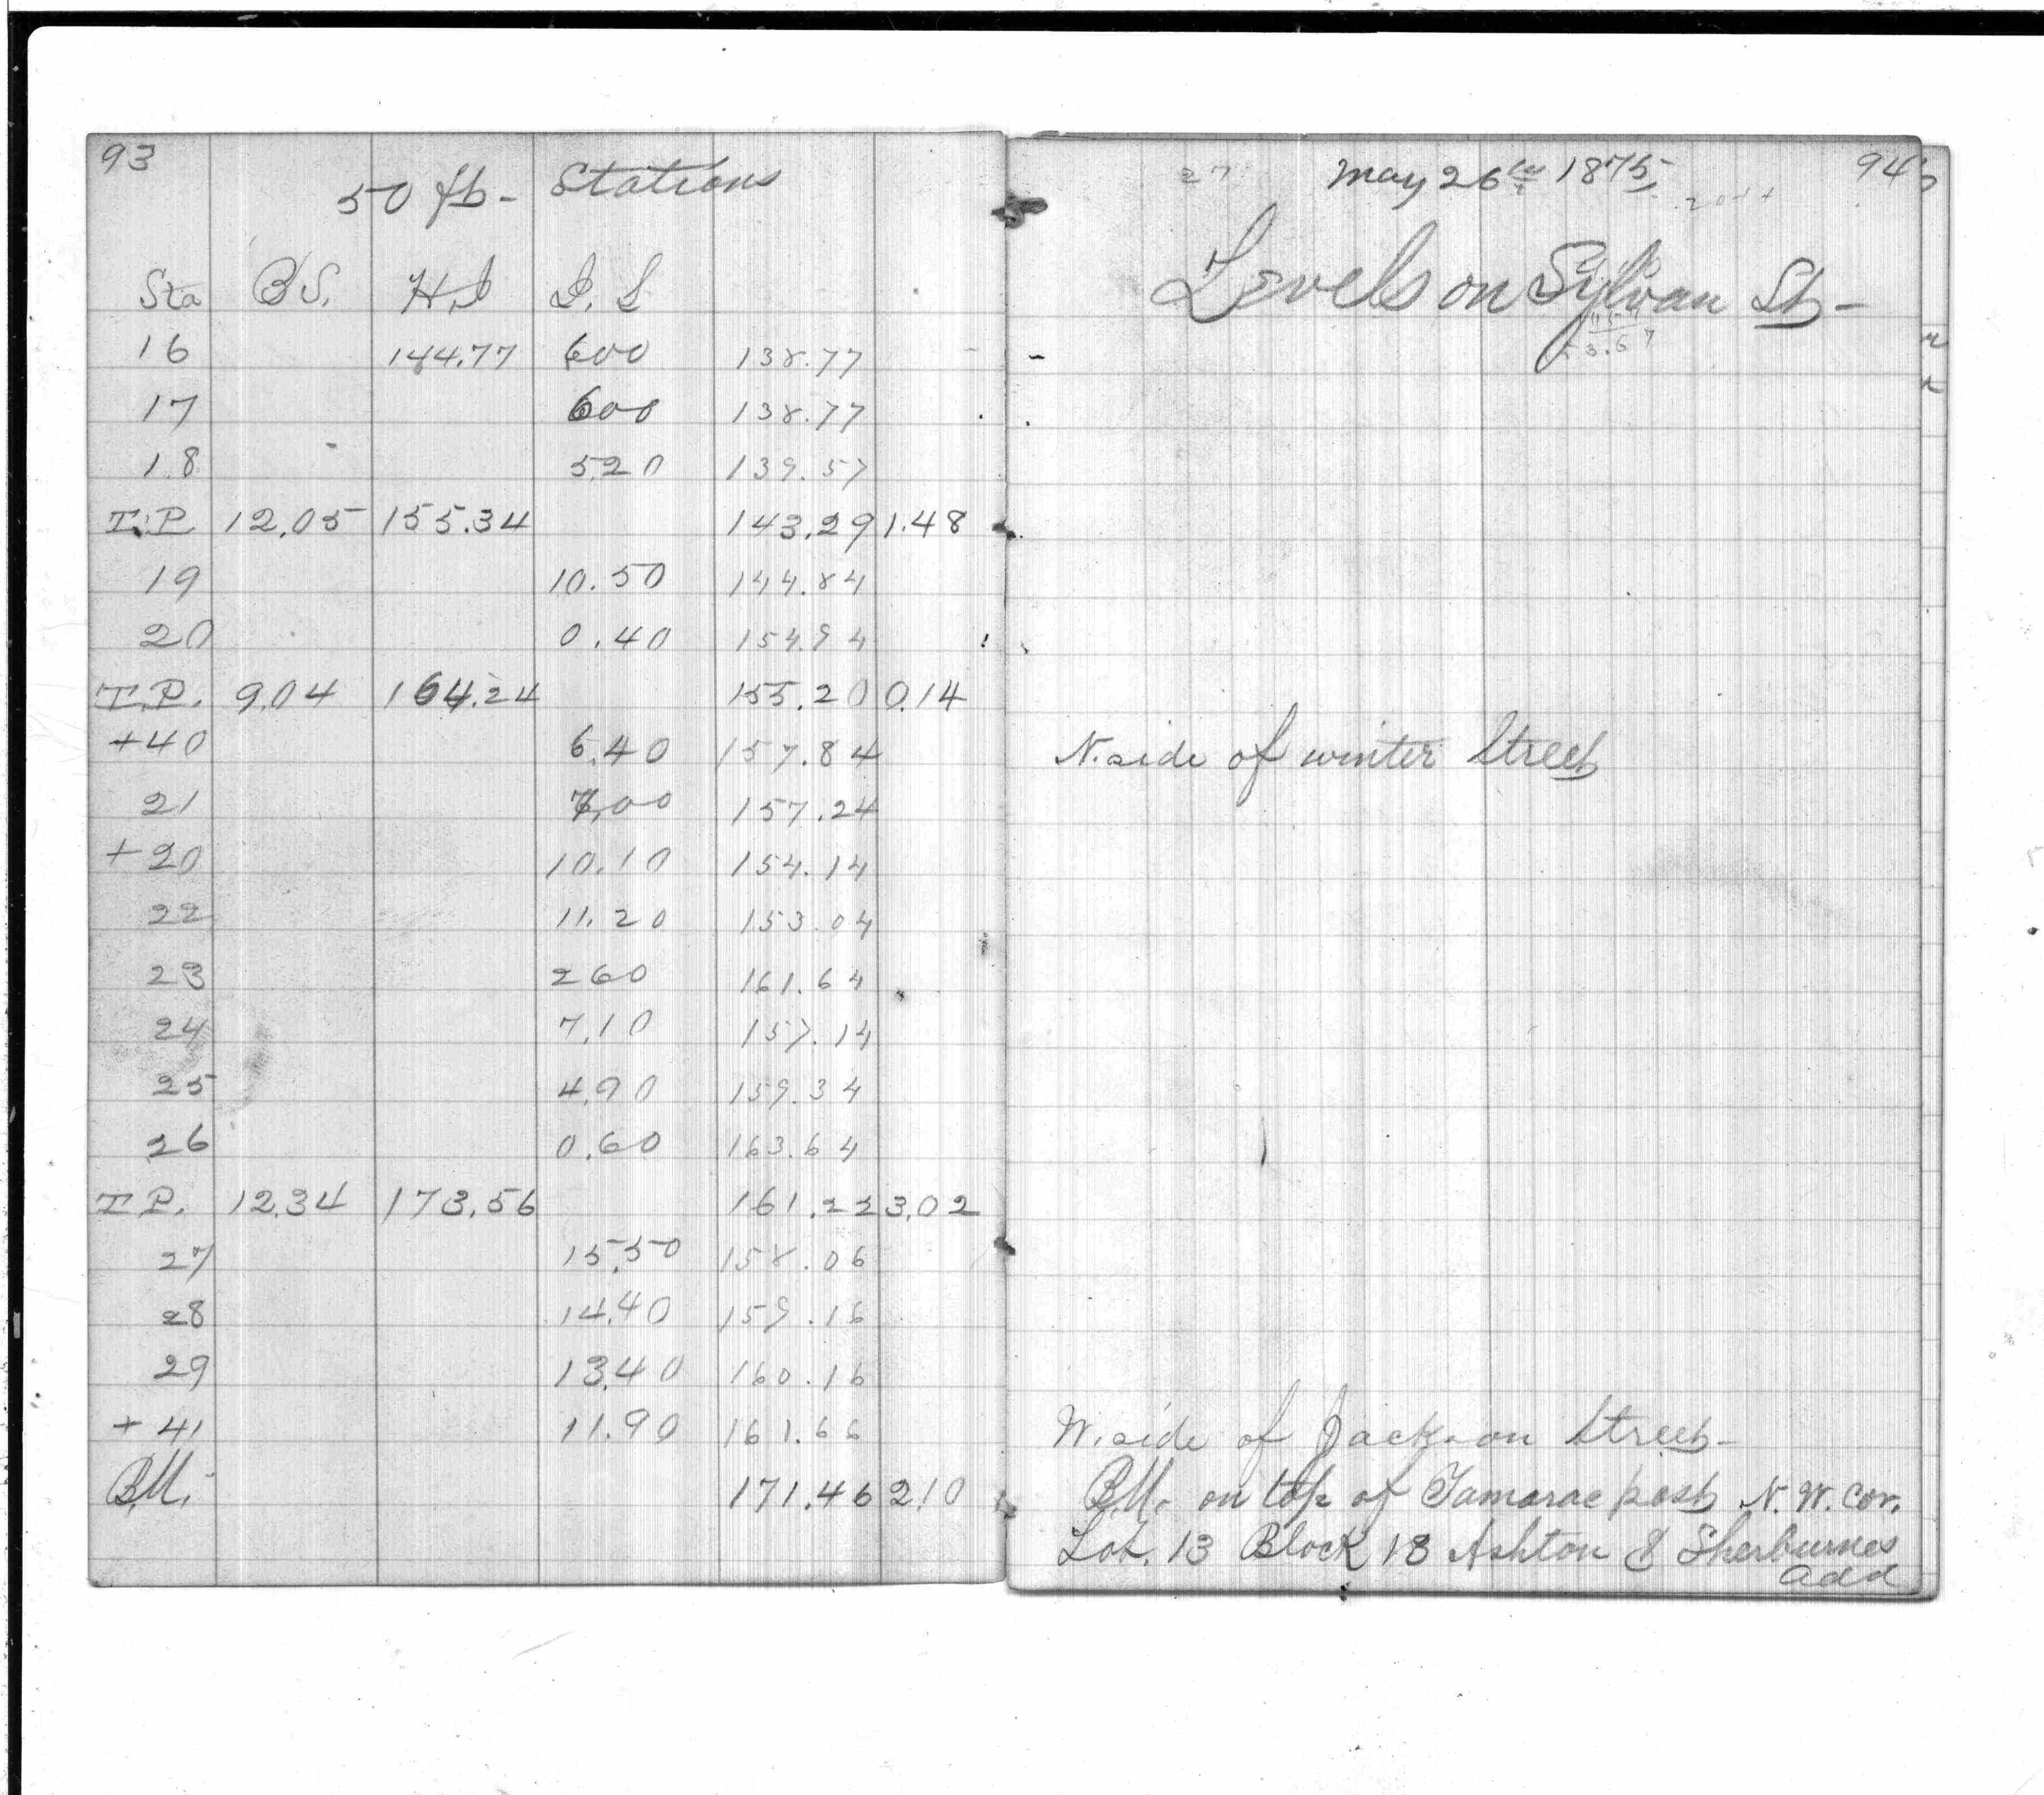 93
50 ft- Stations
Sta B.S. H.I I. S
16 144.77 600 138.77
17 600 138.77
18 5.20 139.57
T.P. 12.05 155.34 143.29 1.48
19 10.50 144.84
20 0.40 154.94
T.P. 9.04 164.24 155.20 0.14
+40 6.40 157.84
21 7.00 157.24
+20 10.10 154.14
22 11.20 153.04
23 260 161.64
24 7.10 157.14
25 4.90 159.34
26 0.60 163.64
T.P. 12.34 173.56 161.22 3.02
27 15.50 158.06
28 14.40 159.16
29 13.40 160.16
+41 11.90 161.66
B.M. 171.46 2.10
May 26th 1875 94
Levels on Sylvan St-
N. side of winter Street
W. side of Jackson Street-
B.M. on top of Tamarac post N. W. Cor.
Lot. 13 Block 18 Ashton & Sherburnes
add